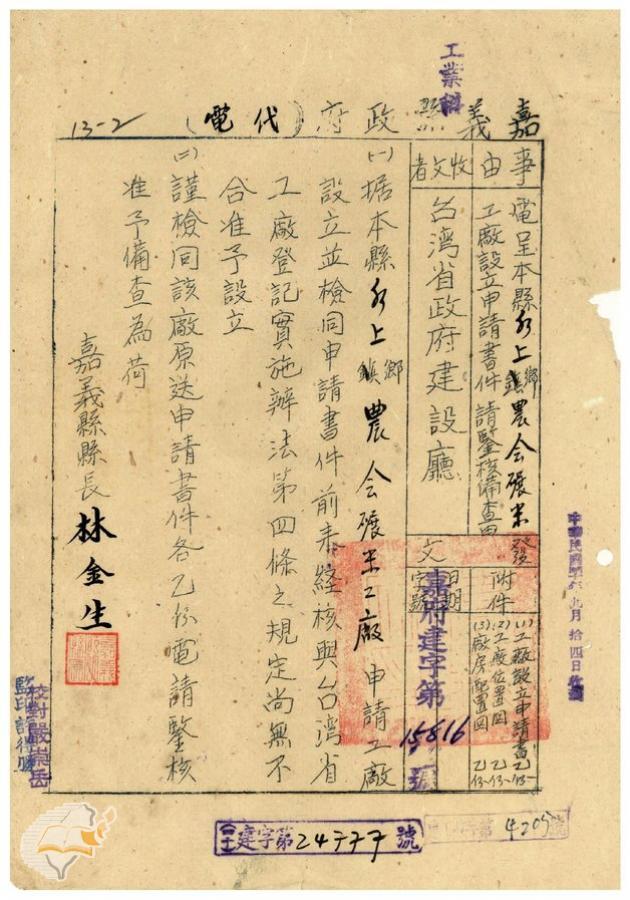 工業科
嘉義縣政府（代電）
13-2
事由
電呈本縣水上鄉鎮農会碾米
工廠設立申請書件請鑒核備查由
收文者
台湾省政府建設廳
附件
(1)工廠設立申請書乙份
(2)工廠位置図乙份
(3)廠房配置図乙份
發文
日期
字號
嘉府建字第15816號
(一)据本縣水上鄉鎮農会碾米工廠申請工廠
設立並檢同申請書件前來経核與台湾省
工廠登記實施辦法第四條之規定尚無不
合准予設立
(二)謹檢同該廠原送申請書件各乙份電請鑒核
准予備查為荷
嘉義縣縣長林金生
校對嚴崇岳
監印
九月拾四日收
四十一建字第24777號